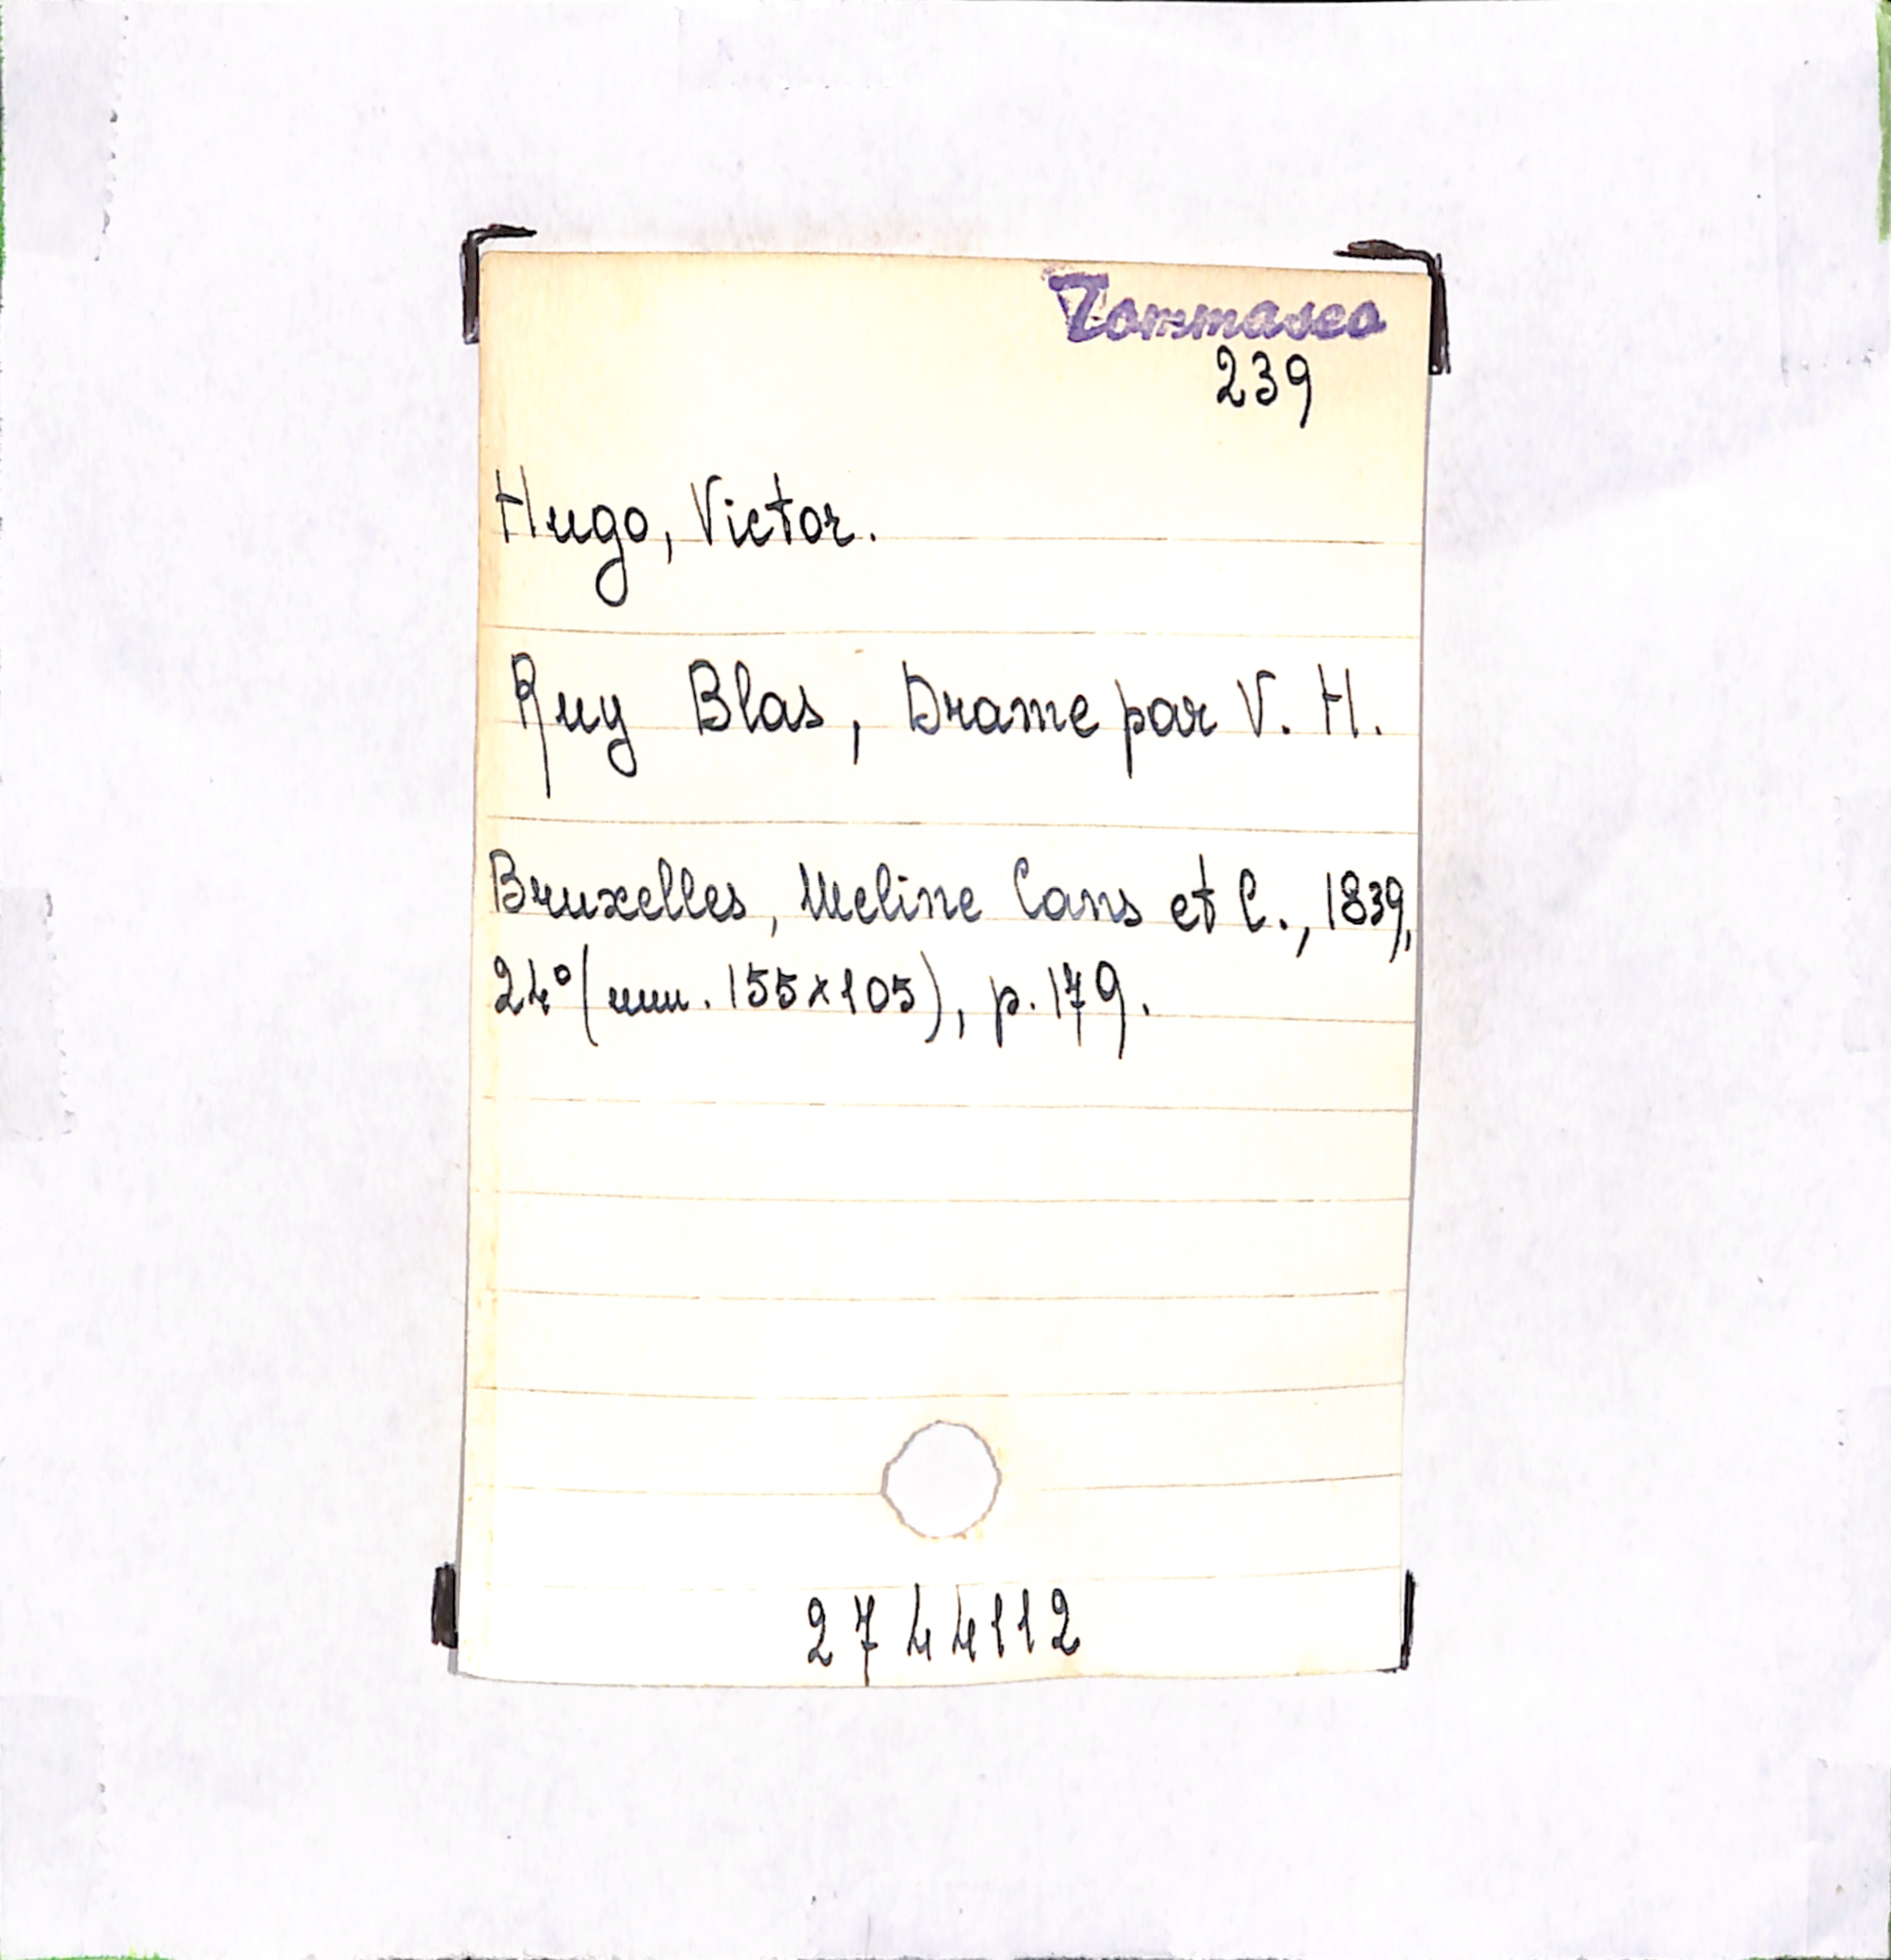 Tommaseo
239
Hugo, Victor.
Ruy Blas, Drame par V. H.
Bruxelles, Meline Cans et C., 1839,
24° (mm. 155x105), p. 179.
2744112